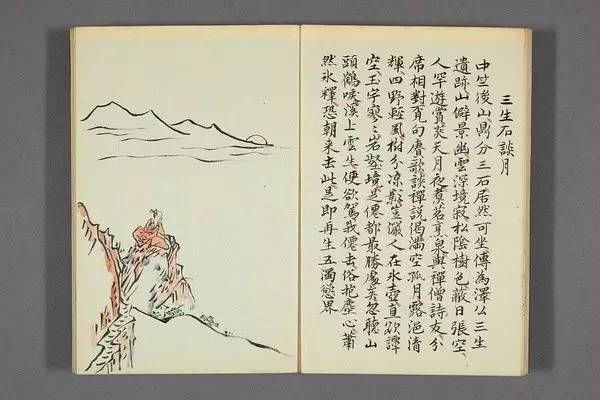 三生石談月
中竺後山鼎分三石居然可坐傳為澤公三生
遺跡山僻景幽雲深境寂松陰樹色蔽日張空
人罕遊賞炎天月夜煮茗烹泉與禪僧詩友分
席相對覓句賡歌談禪說偈滿空孤月露浥清
輝四野輕風樹分凉影豈儼人在氷壺直欲譚
空玉宇寥〻岩壑境是僊都最勝處矣忽聽山
頭鶴唳溪上雲生便欲駕我僊去俗抱塵心蕭
然氷釋恐朝來去此是即再生五濁慾界